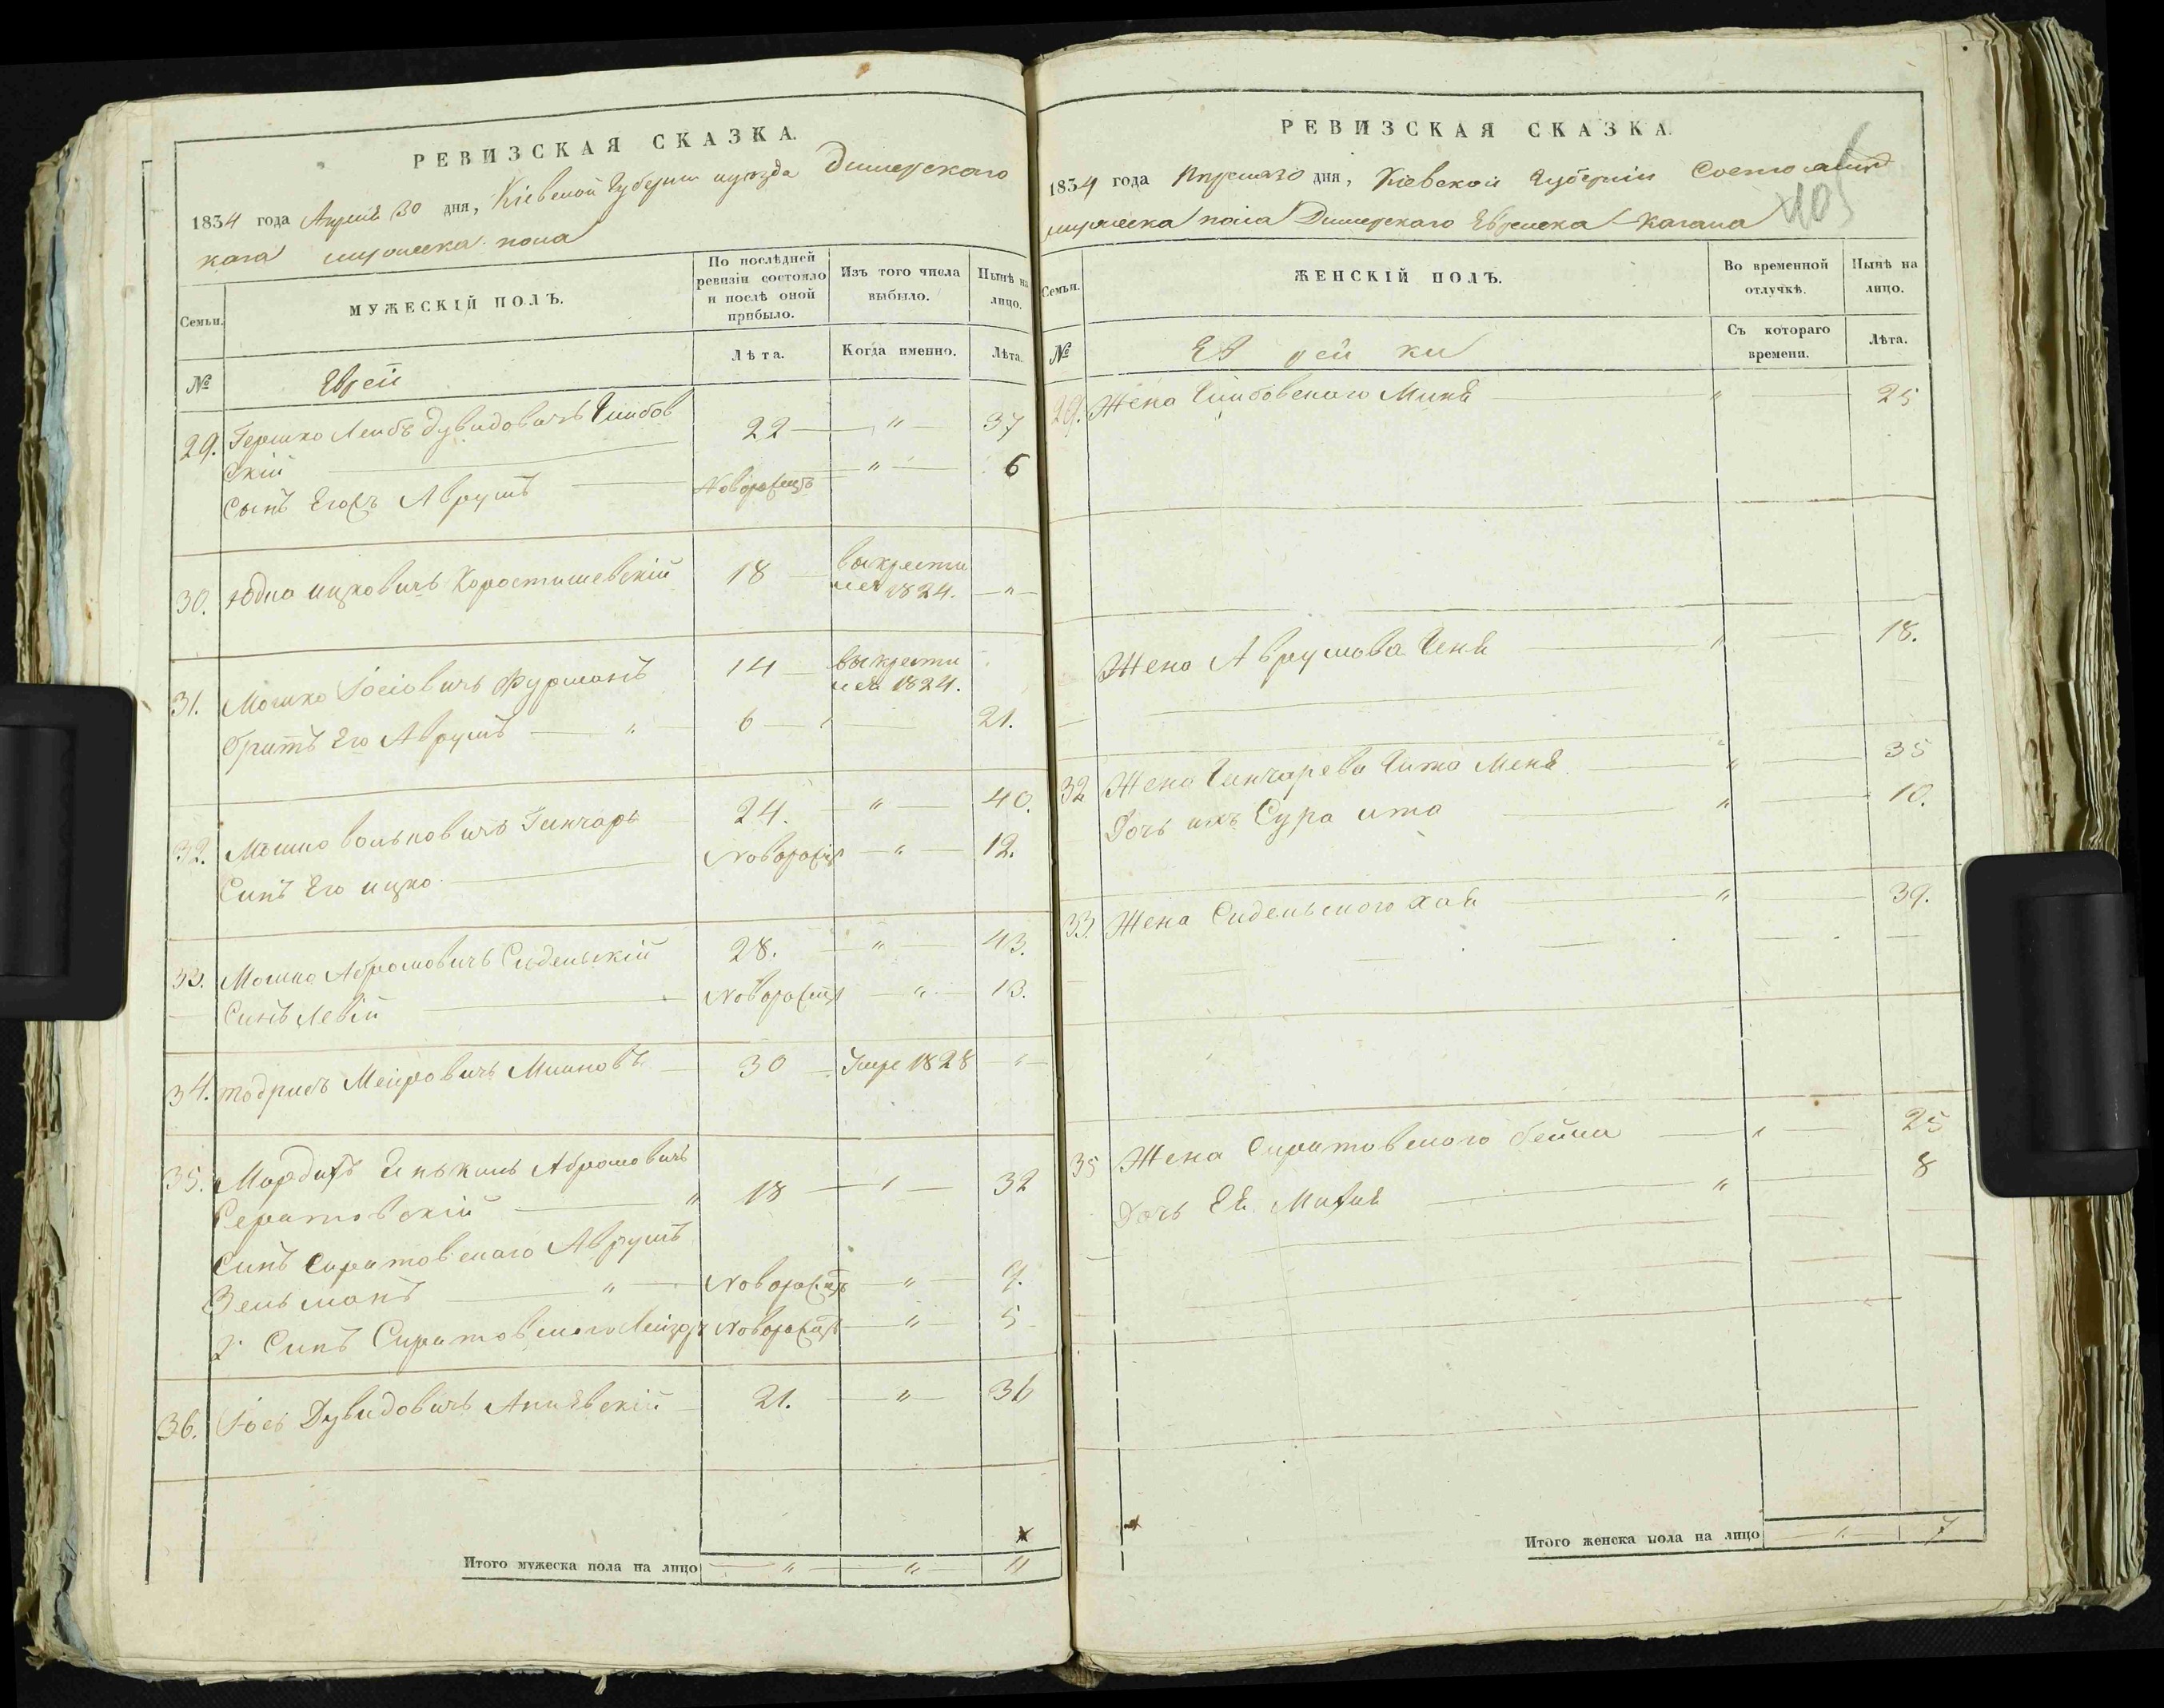 РЕВИЗСКАЯ СКАЗКА.
1834 года Апреля 30 дня, Кіевской Губерніи и уезда Димерского
кага мужеска пола
Семьи.
МУЖЕСКІЙ ПОЛЪ.
По послѣдней ревизіи состояло и послѣ оной прибыло.
Изъ того числа выбыло.
Нынѣ на лицо.
№
Еврей
Лѣта.
Когда именно.
Лѣта.
29. Гершко Лейбъ Дувидовичь 22 — " — 37
скій
Сынъ Его Аврумъ — Новорожд — " — 6
30. Юдко Ицковичь Коростишевскій 18 выкрести
лся 1824. — " —
31. Мошко Іосіовичь Фурманъ 14 выкрести
лся 1824.
братъ Его Аврумъ — " — 6 — 21.
32. Мошко Вольковичь Гинчарь 24. — " — 40.
Синъ Его Ицко — Новорожд — " — 12.
33. Мошко Абрамовичь Сидельскій 28. — " — 43.
Синъ Левій — Новорожд — " — 13.
34. Тодрисъ Меировичь 30 — Умре 1828 — " —
35. Абрамовичь
Сиратовскій — " 18 — " — 32
Синъ Сиратовскаго Аврумъ
Зельманъ — " — Новорожд — " — 9.
2й Синъ Сиратовского Лейзоръ Новорожд — " — 5
36. Іось Дувидовичь 21. — " — 36
Итого мужеска пола на лицо — " — " — 11
РЕВИЗСКАЯ СКАЗКА.
1834 года Апреля 30 дня, Кіевской Губерніи
пола Димерского Еврейска Кагала
405
Семьи.
ЖЕНСКІЙ ПОЛЪ.
Во временной отлучкѣ.
Нынѣ на лицо.
№
Еврейки
Съ котораго времени.
Лѣта.
29. Жена " — 25
Жена Аврумова — " — 18.
32 Жена Гинчарева — " — 35
Дочь ихъ Сура Ита — " — 10.
33. Жена Сидельского Хая — " — 39.
35 Жена Сиратовского Бейла — " — 25
Дочь Ея — " — 8
Итого женска пола на лицо — " — 7